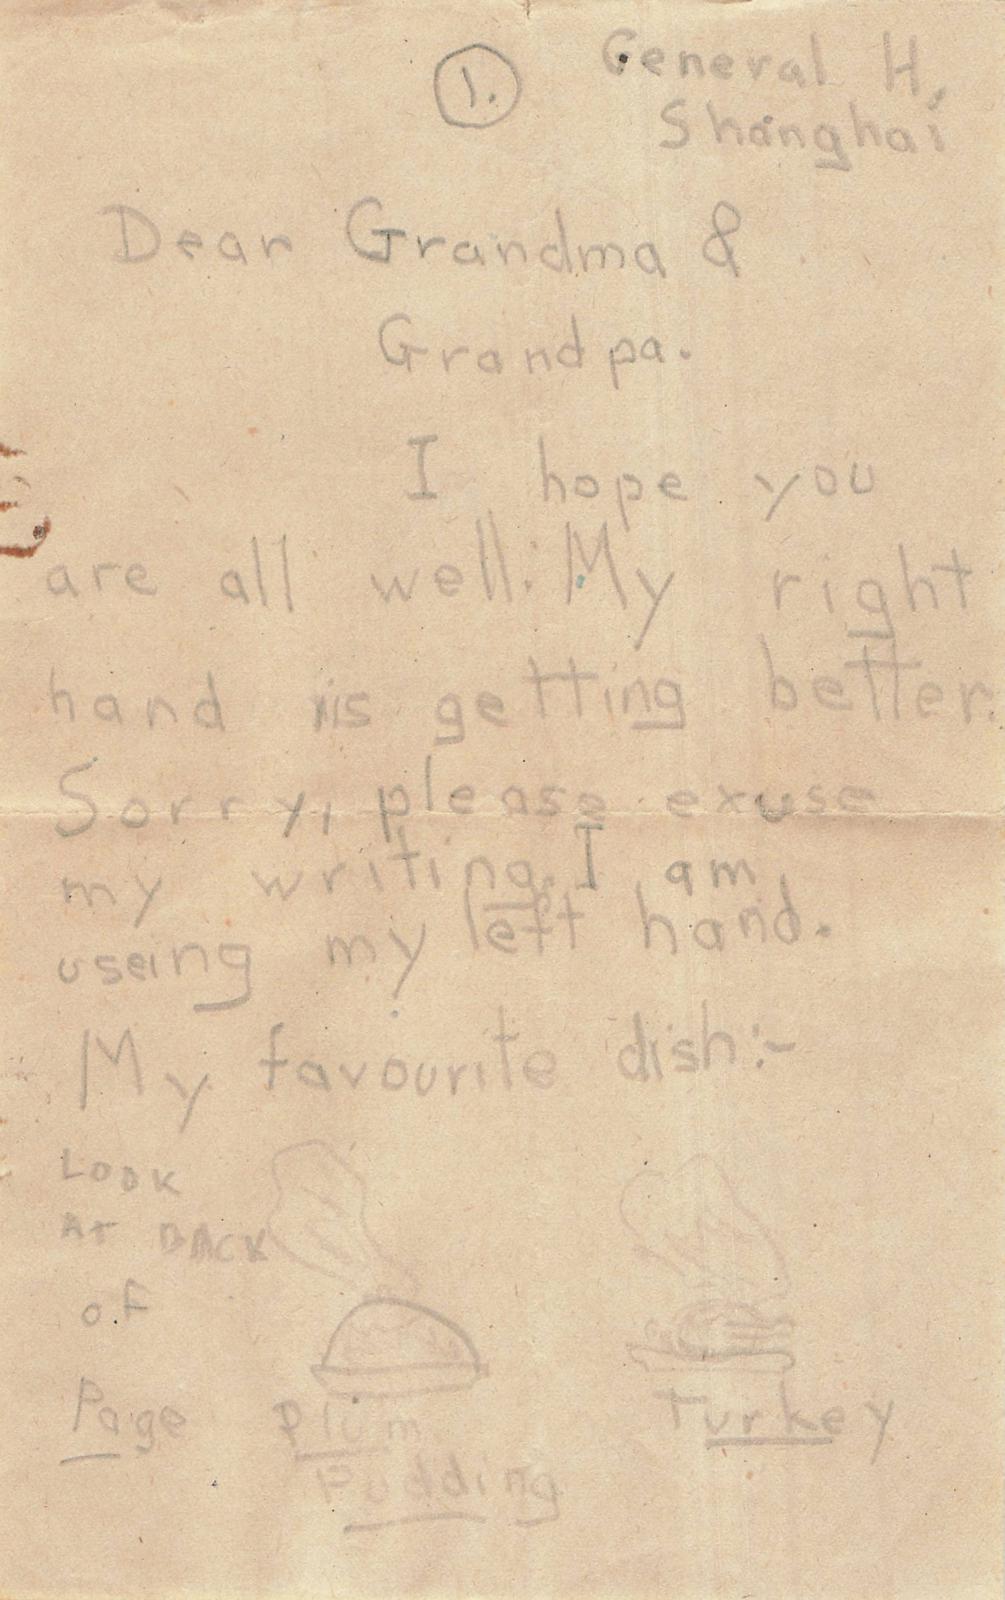 1. General H.
Shanghai
Dear Grandma &
Grandpa.
I hope you
are all well. My right
hand is getting better.
Sorry, please exuse
my writing. I am
useing my left hand.
My favourite dish:-
LOOK
AT BACK
of
Page
Plum
Pudding
Turkey